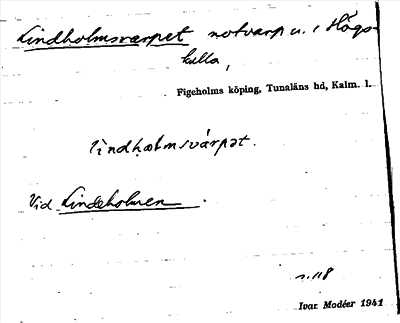 Lindholmsvarpet notvarp u. i Högs-
kulla,
Figeholms köping, Tunaläns hd, Kalm. l.
lìndhωlmsvárpət.
Vid Lindeholmen.
s. 118
Ivar Modéer 1941